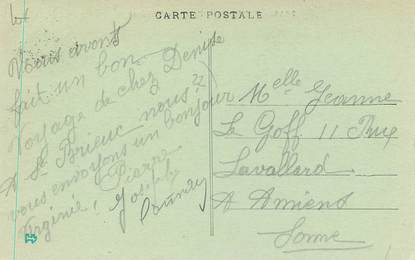 CARTE POSTALE
Nous avons
fait un bon
Voyage de chez Denise
A St Brieuc nous
vous envoyons un bonjour
Pierre
Virginie, Joseph
Melle Jeanne
Le Goff 11 Rue
Lavallard
A Amiens
Somme